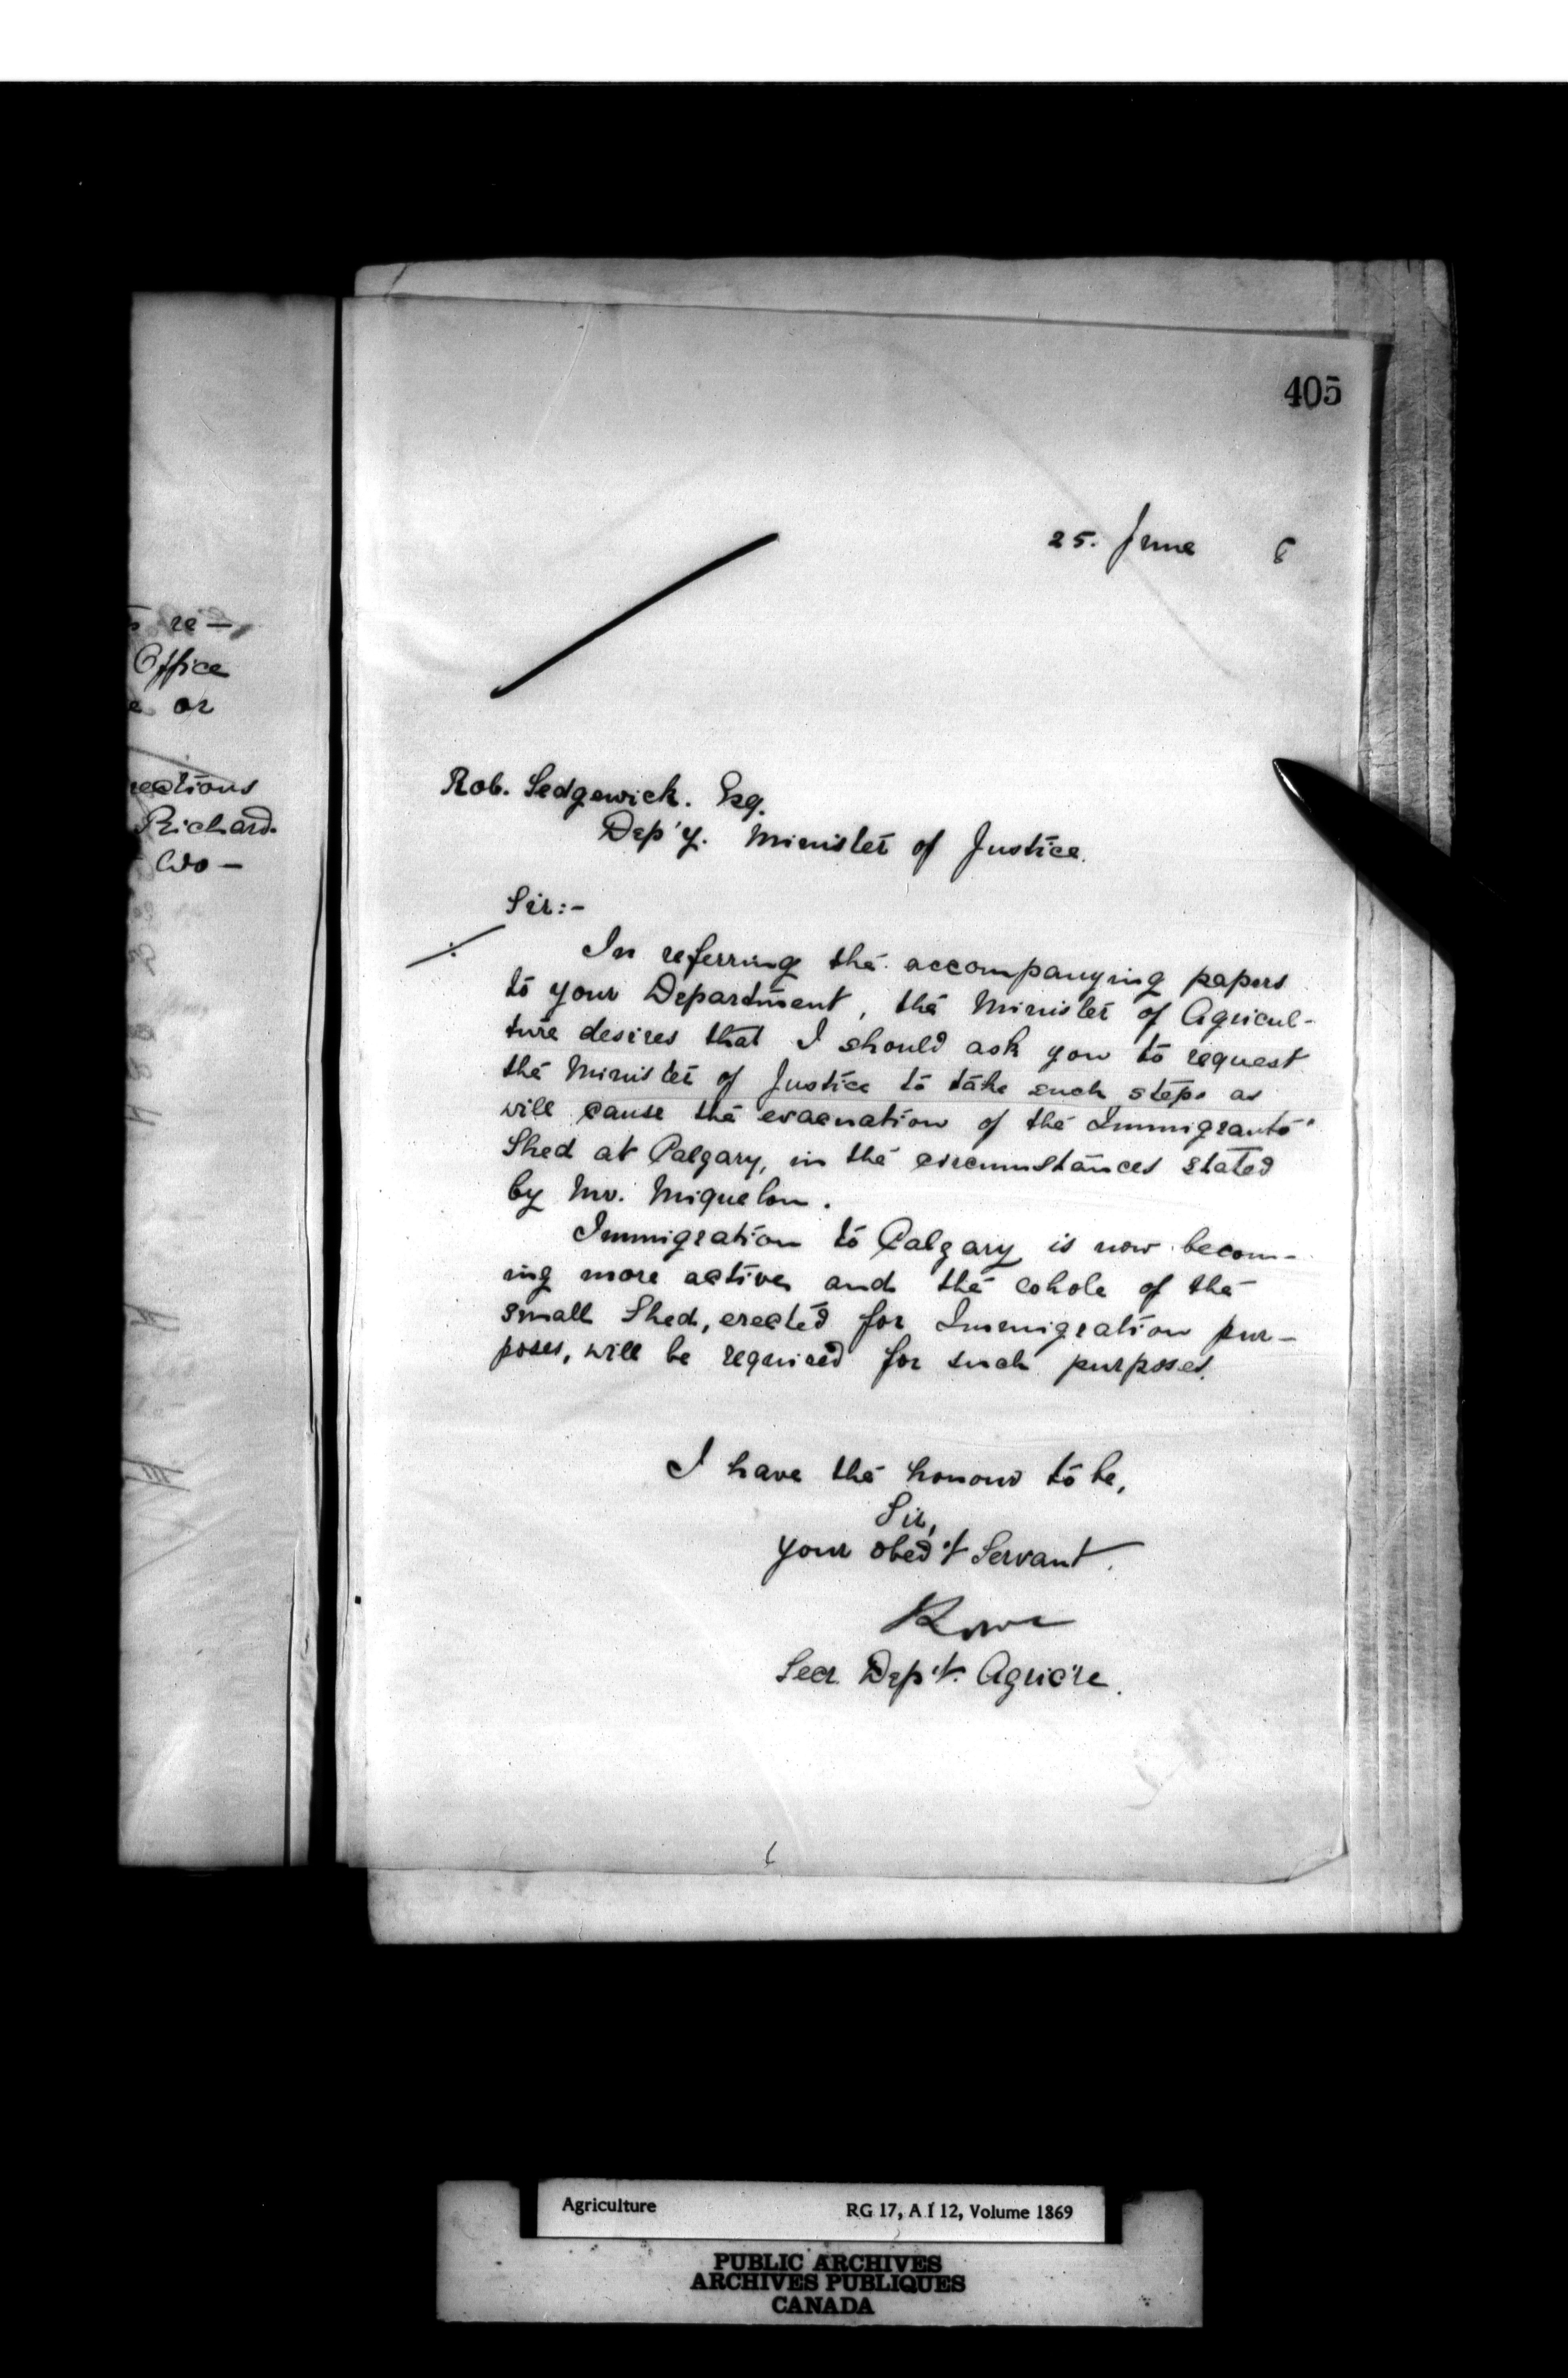 405
25. June 8
s re—
Office
e or
rections
Richard.
Wo—
Rob. Sedgewick. Esq.
Dep'y. Minister of Justice.
Sir:-
In referring the accompanying papers
to your Department, the Minister of Agricul-
ture desires that I should ask you to request
the Minister of Justice to take such steps as
will cause the evacuation of the Immigrants'
Shed at Calgary, in the circumstances stated
by Mr. Miquelon.
Immigration to Calgary is now becom-
ing more active and the whole of the
small Shed, erected for Immigration pur-
poses, will be required for such purposes.
I have the honour to be,
Sir,
your obed't Servant.
Secr. Dep't. Agric're.
Agriculture RG 17, A I 12, Volume 1869
PUBLIC ARCHIVES
ARCHIVES PUBLIQUES
CANADA